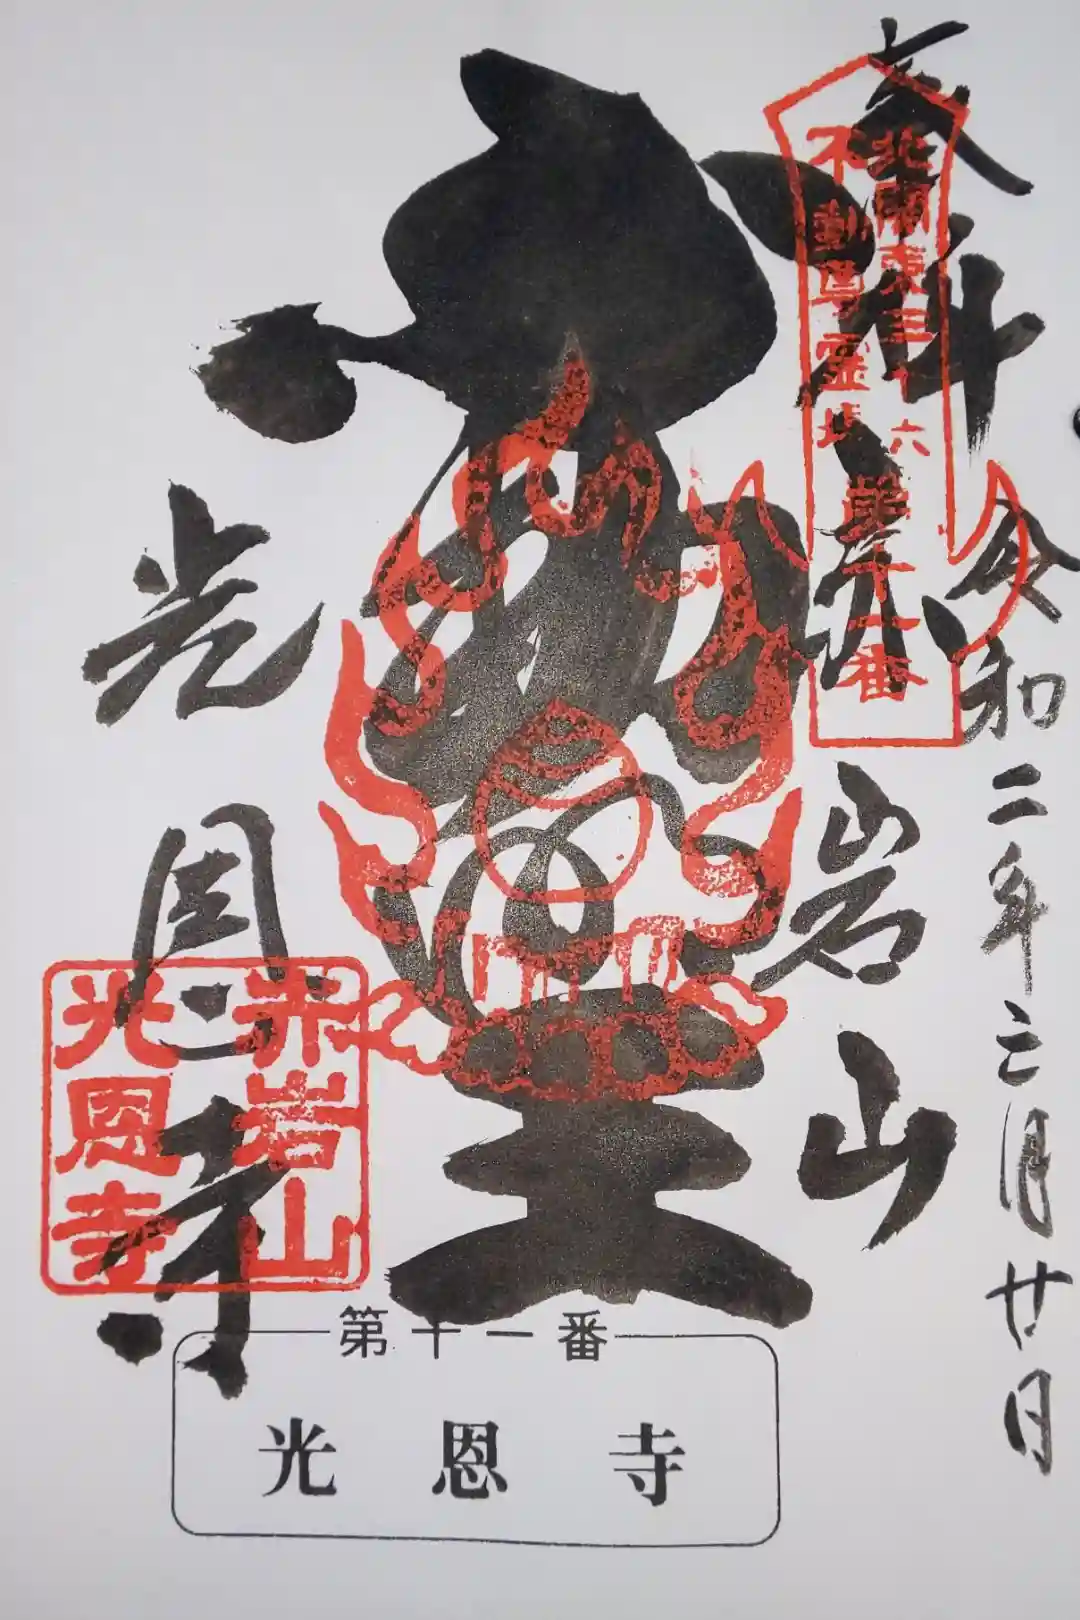 令和二年三月廿日
奉拝
赤岩山
北関東三十六
不動尊霊場
第十一番
光恩寺
赤岩山
光恩寺
第十一番
光恩寺